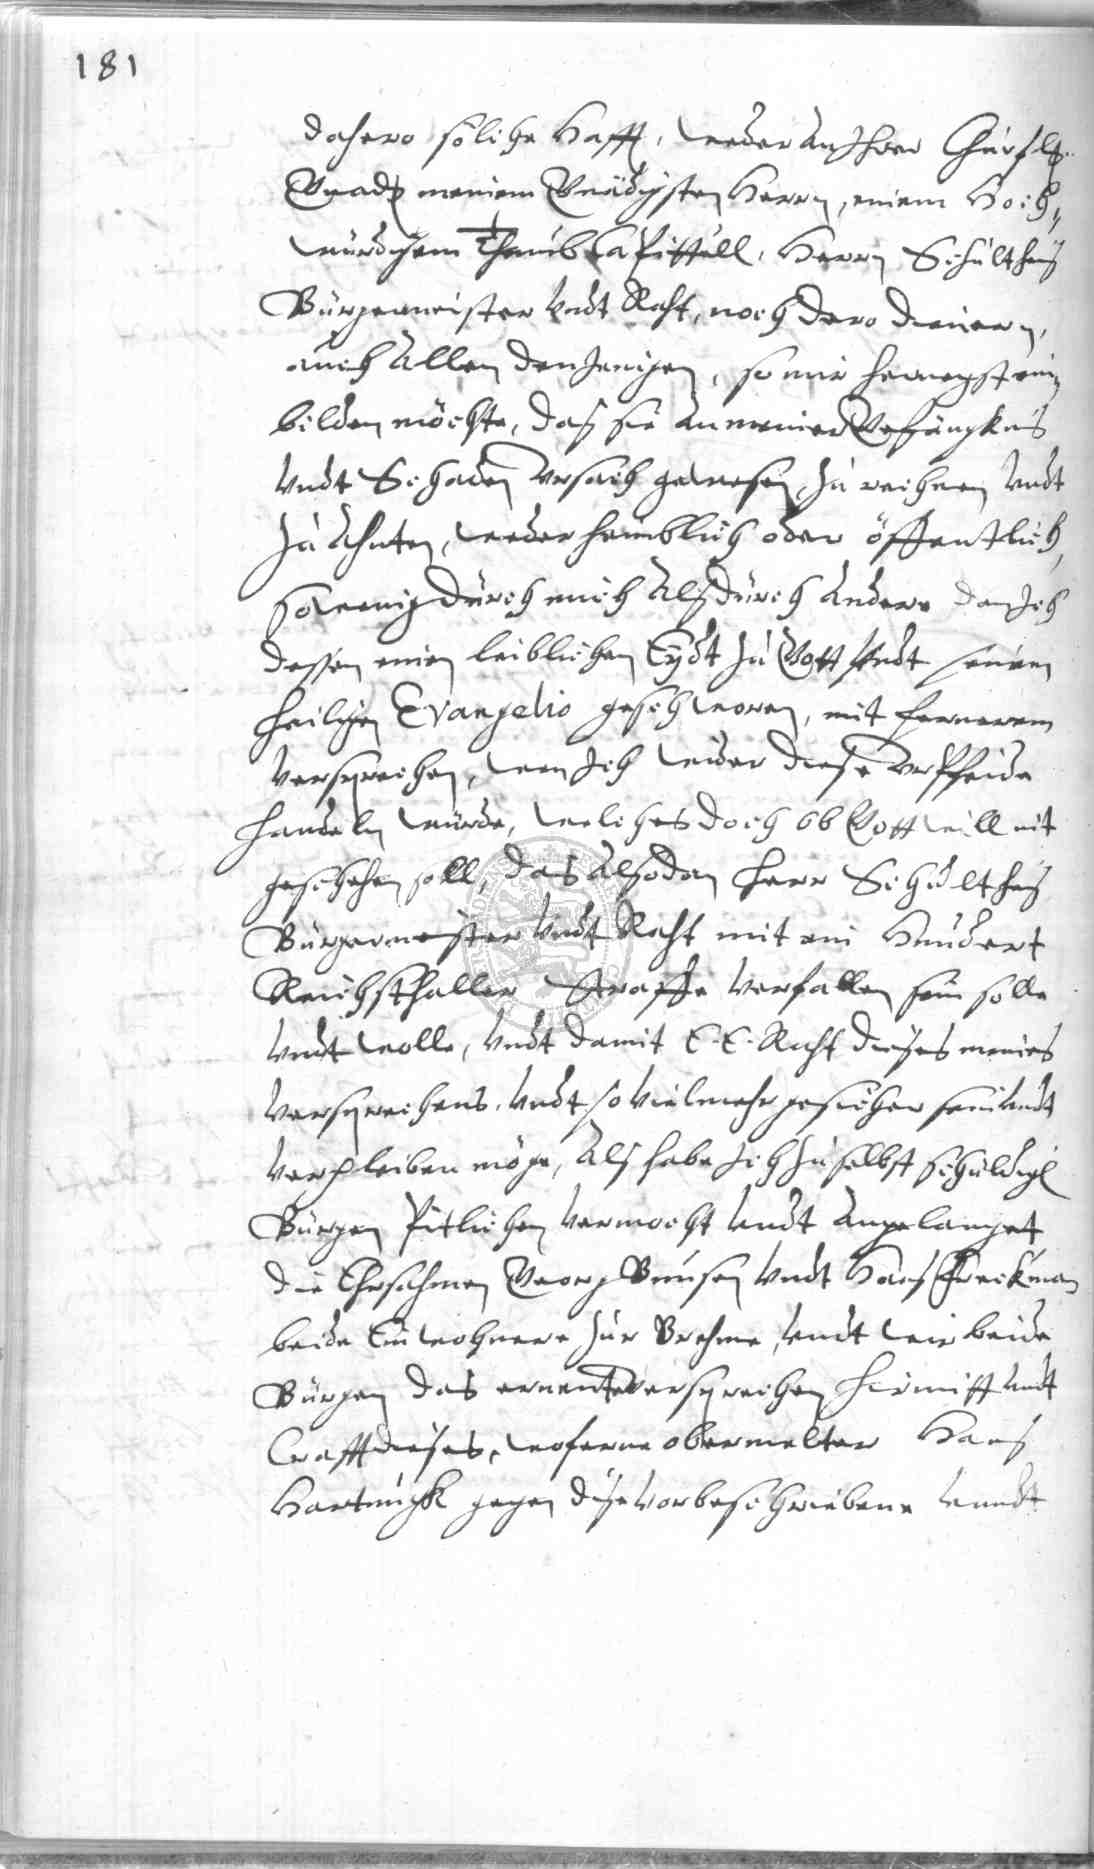 181
dahero solche Hafft, weder an Ihrer Churfl.
Gnad. meinem Gnädigsten Herrn, einem Hoch„
würdigem Thumb Capittell, Herrn Schultheiß
Bürgermeister vndt Raht, noch dero dienern,
auch Allen denJenigen, so mir hernegst ein„
bilden möchte, daß sie an meiner Gefängknus
vndt Schaden vrsach gewesen, zu rechnen vndt
zu Ahnten, weder heimblich oder öffentlich,
sowenig durch mich Alß durch Andere dan Ich
dessen einen leiblichen Eydt zu Gott vndt seinem
heiligen Evangelio geschworen, mit fernerem
versprechen, wen Ich wider diese vrPheide
handeln würde, welches doch ob Gott will nit
geschehen soll, das Alßdan Herr Schultheiß
Bürgermeister vndt Raht mit ein Hundert
Reichsthaller Straffe verfallen sein solle
vndt wolle, vndt damit E. E. Raht dieses meines
versprechens vndt so vielmehr gesicher sein vndt
verpleiben möge, Alß habe Ich zu selbst schuldige
Bürgen Pitlichen vermocht vndt angelanget
die Ehrsahmen Georg Bunsen vndt Hans Freckman
beide Einwohnere zur Brehme, vndt wir beide
Bürgen das ernente versprechen hirmitt vndt
Crafft dieses, woferne obermelter Hans
Hartungk gegen diese vorbeschriebene vundt